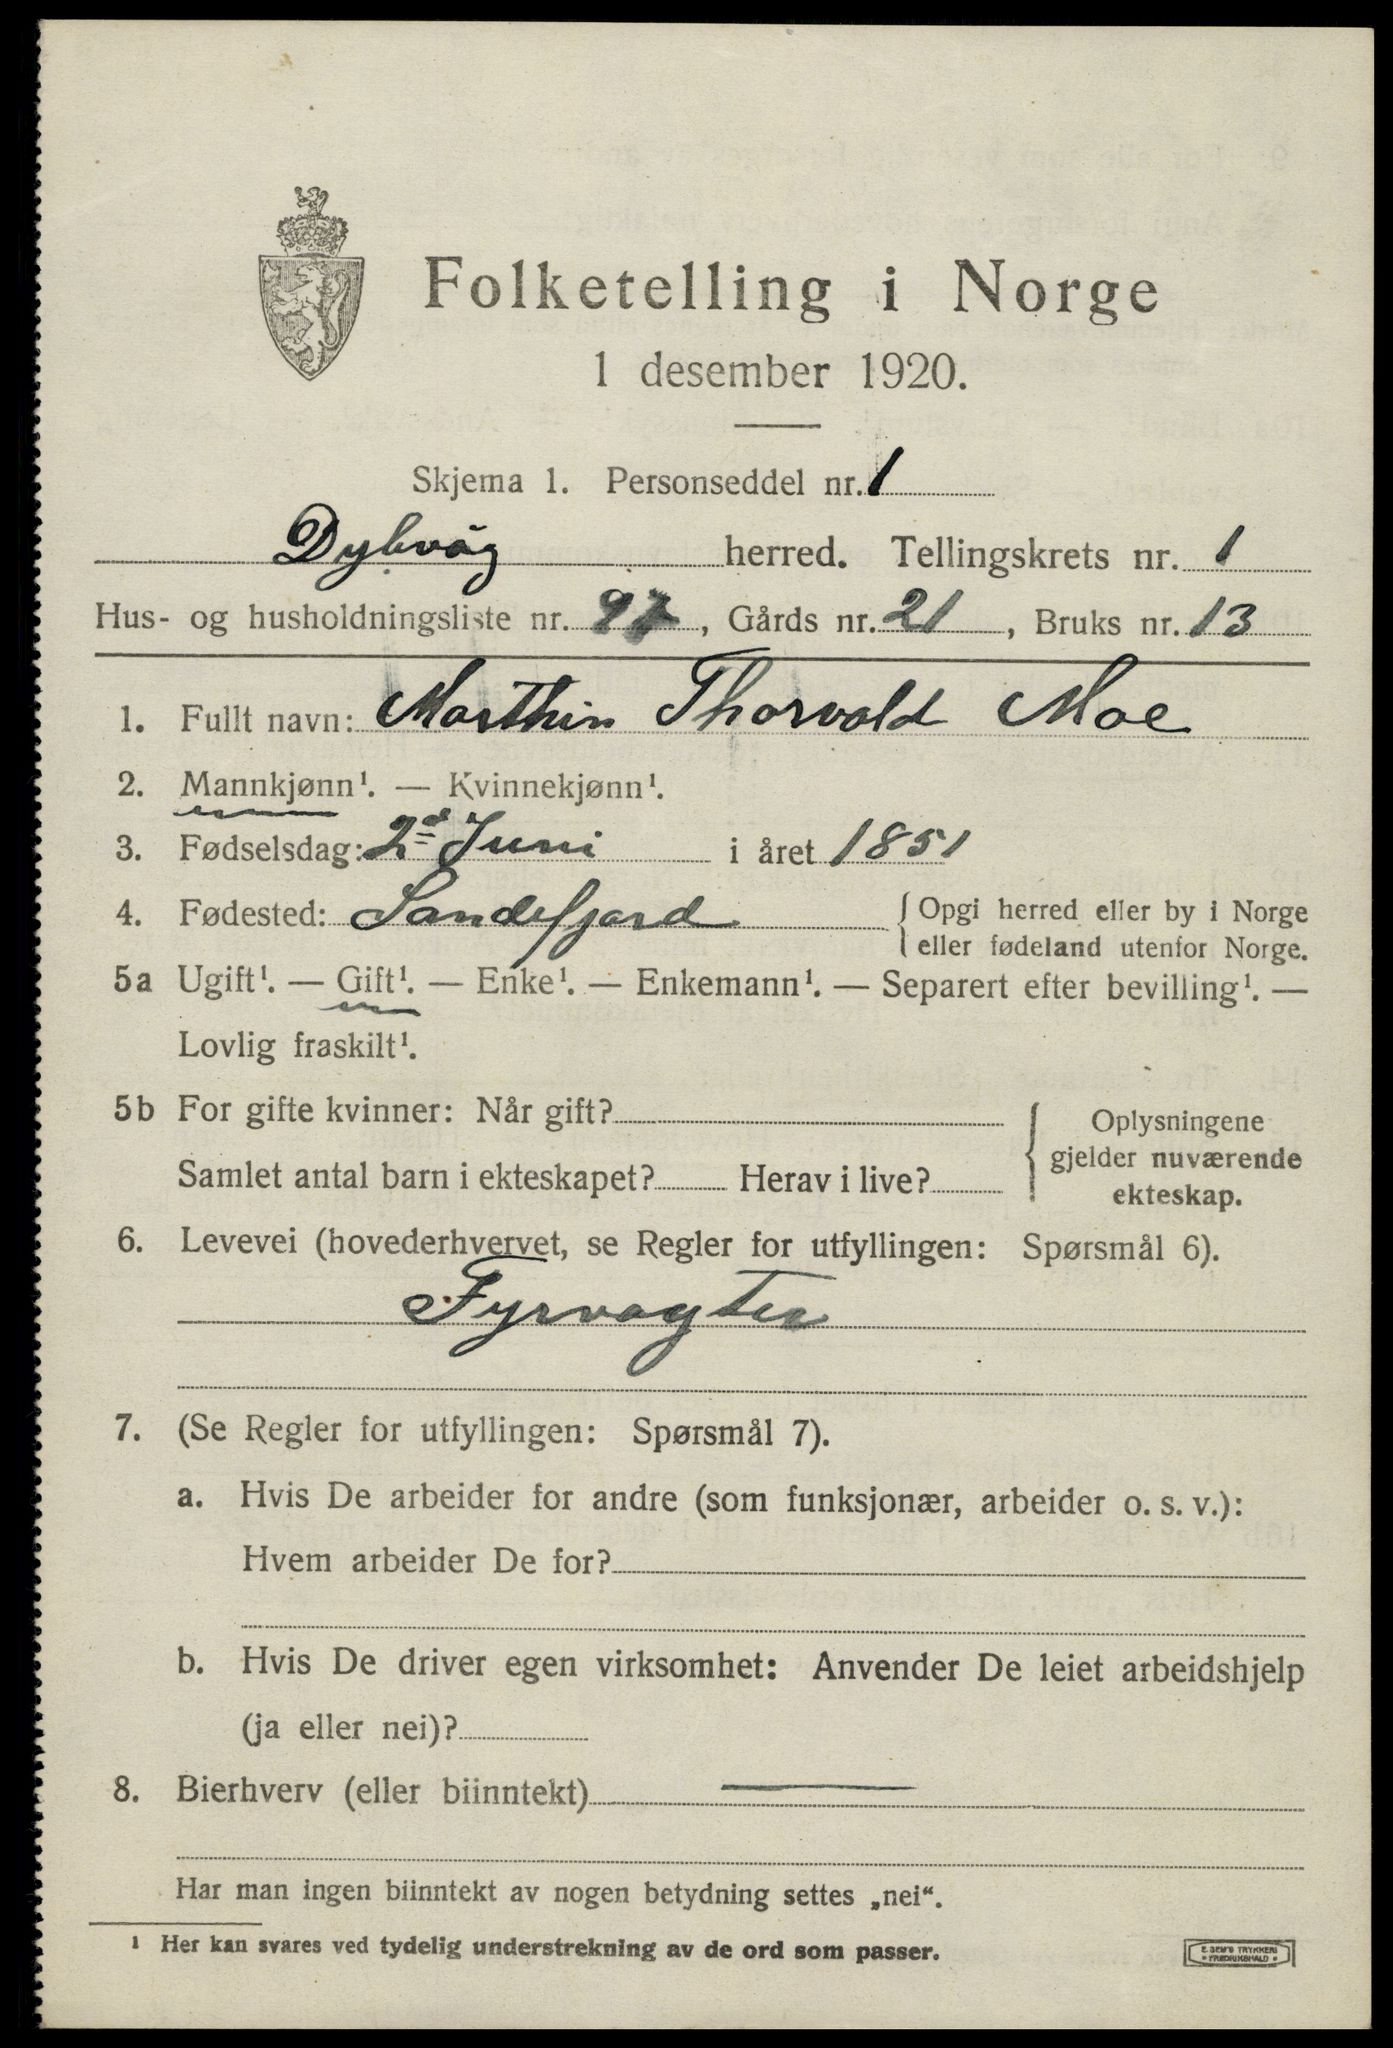 Folketelling i Norge
1 desember 1920.
Skjema 1. Personseddel nr. 1
Dybvåg herred. Tellingskrets nr. 1
Hus- og husholdningsliste nr. 97, Gårds nr. 21, Bruks nr. 13
1. Fullt navn: Marthin Thorvald Moe
2. Mannkjønn¹. — Kvinnekjønn¹.
3. Fødselsdag: 2d Juni i året 1851
4. Fødested: Sandefjord { Opgi herred eller by i Norge
eller fødeland utenfor Norge.
5a Ugift¹. — Gift¹. — Enke¹. — Enkemann¹. — Separert efter bevilling¹. —
Lovlig fraskilt¹.
5b For gifte kvinner: Når gift?
Samlet antal barn i ekteskapet? Herav i live?
{ Oplysningene
gjelder nuværende
ekteskap.
6. Levevei (hovederhvervet, se Regler for utfyllingen: Spørsmål 6).
Fyrvagter
7. (Se Regler for utfyllingen: Spørsmål 7).
a. Hvis De arbeider for andre (som funksjonær, arbeider o. s. v.):
Hvem arbeider De for?
b. Hvis De driver egen virksomhet: Anvender De leiet arbeidshjelp
(ja eller nei)?
8. Bierhverv (eller biinntekt) —
Har man ingen biinntekt av nogen betydning settes „nei“.
¹ Her kan svares ved tydelig understrekning av de ord som passer.
E. SEM'S TRYKKERI
FREDRIKSHALD